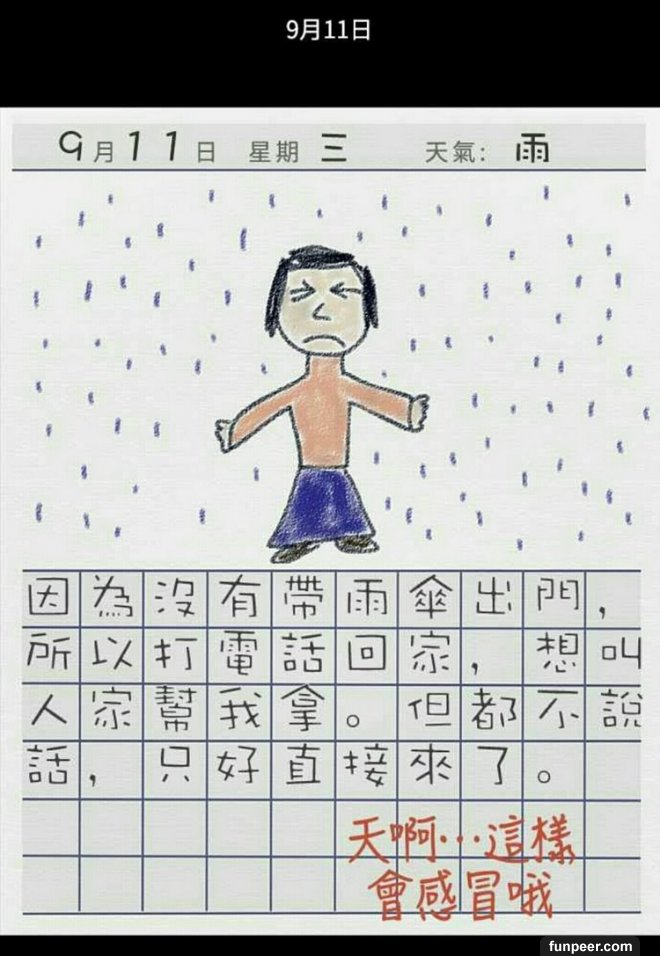 9月11日
9月11日 星期三 天氣：雨
因為沒有帶雨傘出門，
所以打電話回家，想叫
人家幫我拿。但都不說
話，只好直接來了。
天啊…這樣
會感冒哦
funpeer.com